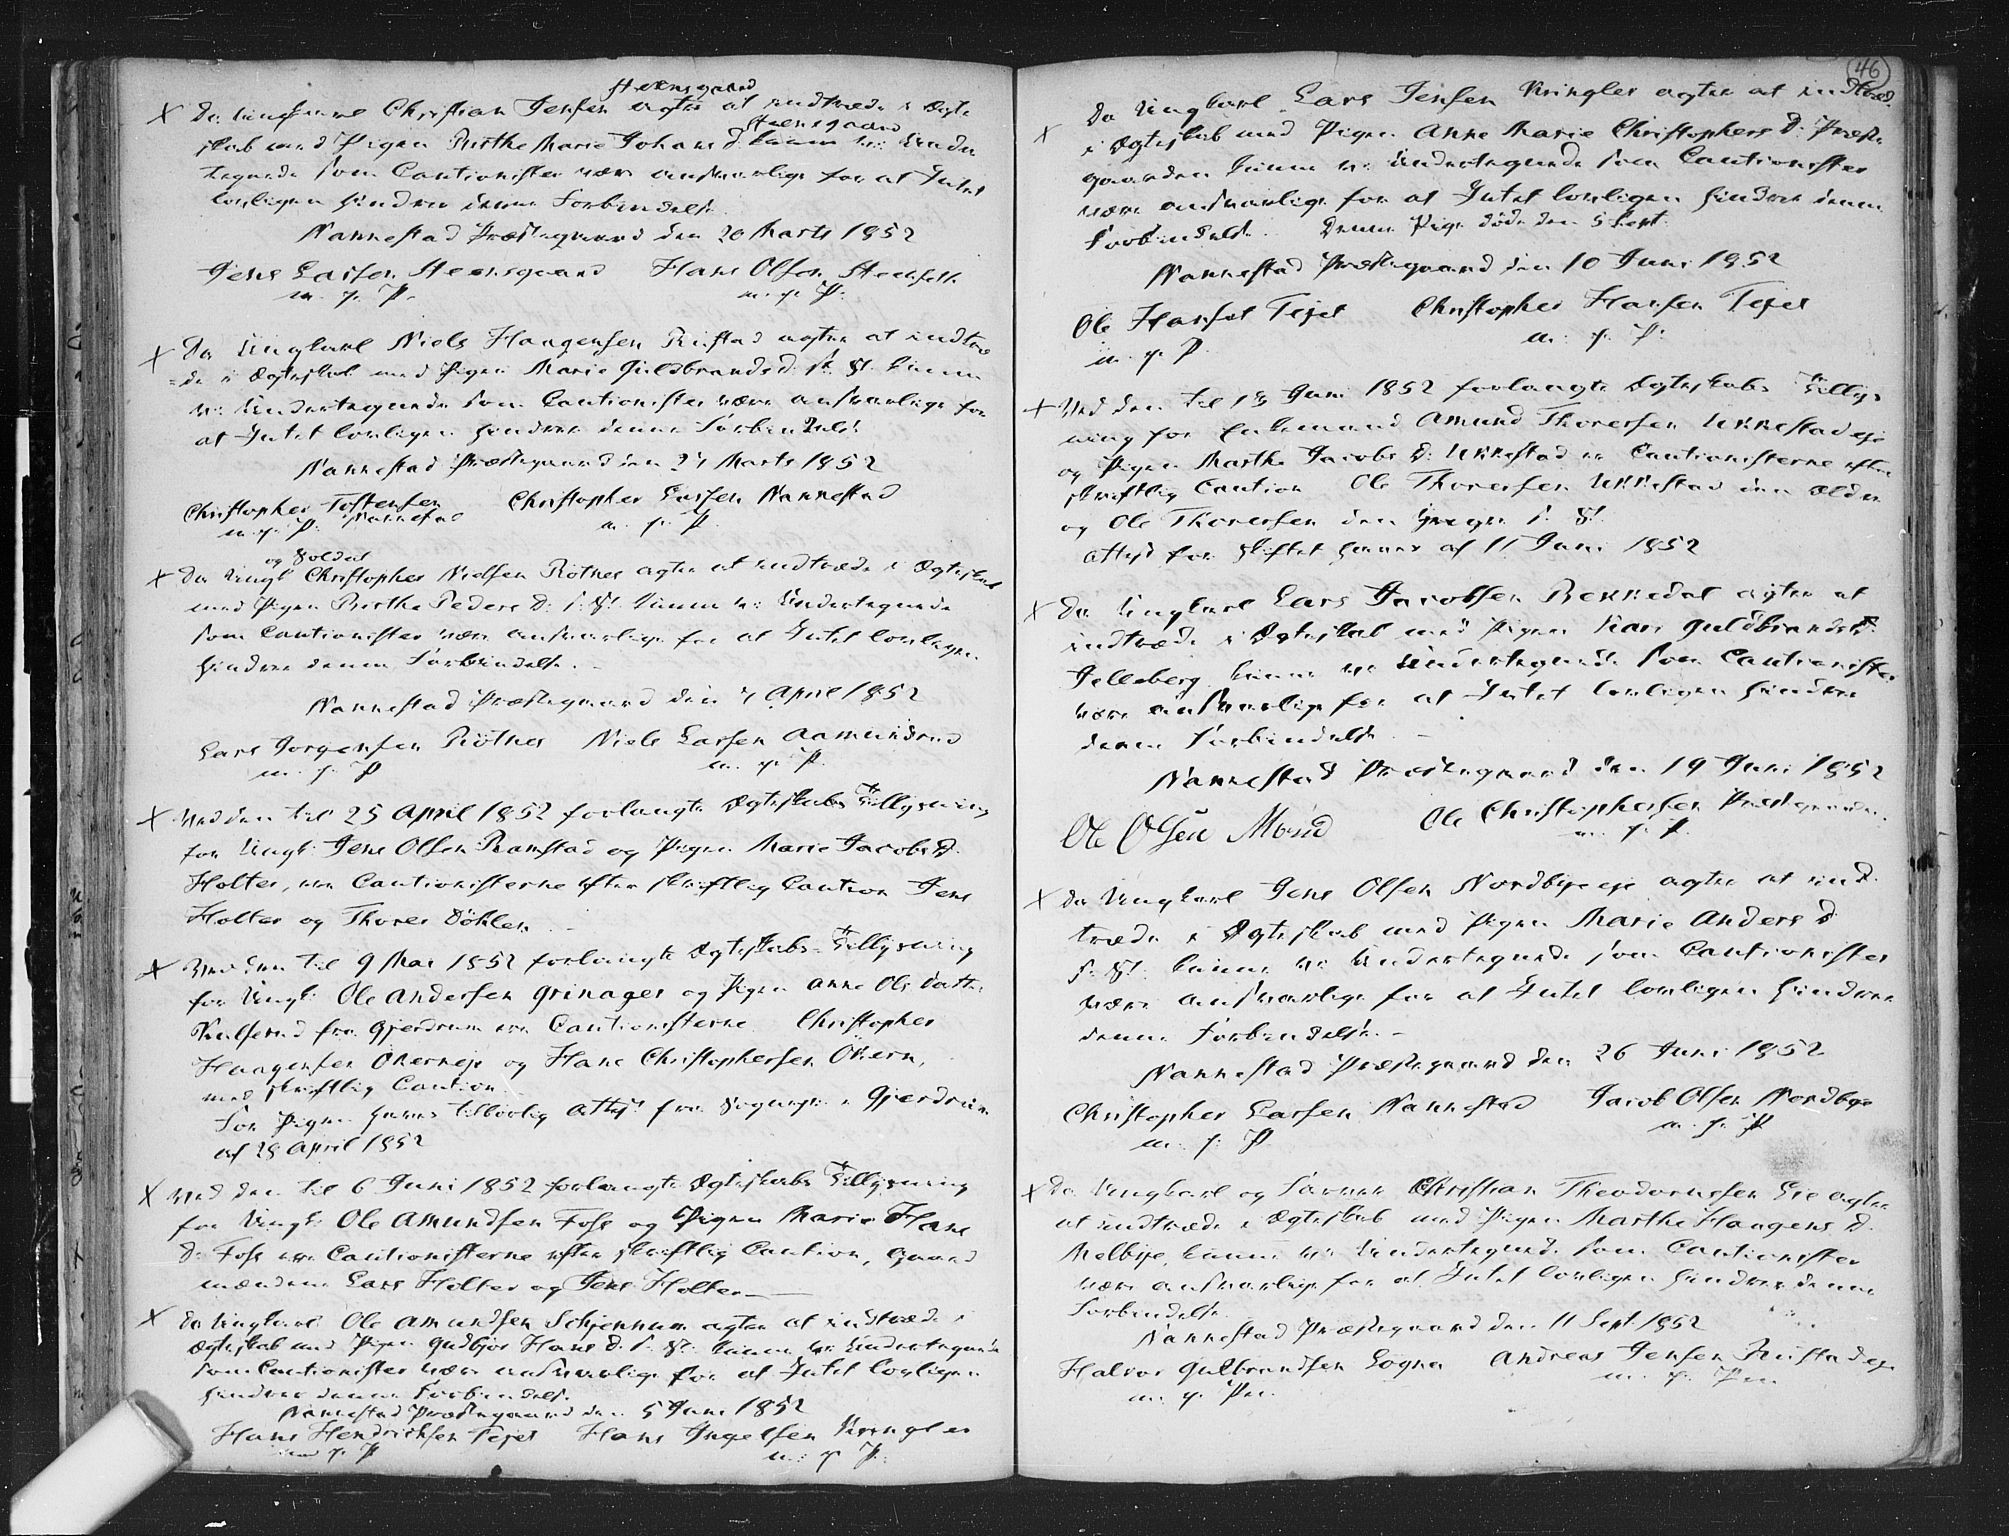 Steensgaard
Da Ungkarl Christian Jensen agter at indtræde i Ægte
Steensgaard
skab med Pigen Birthe Marie Johans D. kunne vi Under
tegnede som Cautionister være ansvarlige for at Intet
lovligen hindrer denne Forbindelse
Nannestad Præstegaard den 20 Marts 1852
Jens Larsen Steensgaard Hans Olsen
m. f. P. m. f. P.
Da Ungkarl Niels Haagensen Rustad agter at indtræ
de i Ægteskab med Pigen Marie Guldbrands d. s. St. kunne
vi Undertegnede som Cautionister være ansvarlige for
at Intet lovligen hindrer denne Forbindelse
Nannestad Præstegaard den 27 Marts 1852
Christopher Tostensen Christopher Larsen Nannestad
m. f. P. Nannestad m. f. P.
og Soldat
Da Ungk. Christopher Nielsen Rotnes agter at indtræde i Ægteskab
med Pigen Birthe Peders D. s. St. kunne vi Undertegnede
som Cautionister være ansvarlige for at Intet lovligen
hindrer denne Forbindelse. -
Nannestad Præstegaard den 7 April 1852
Lars Jorgensen Rotnes Niels Larsen Aamundrud
m. f. P m. f. P.
Ved den til 25 April 1852 forlangte Ægteskabs Tillysning
for Ungk. Jens Olsen Ramstad og Pigen Marie Jacobs D.
Holter, ere Cautionisterne efter skriftlig Caution Jens
Holter og Thorer Döhlen. -
Ved den til 9 Mai 1852 forlangte Ægteskabs-Tillysning
for Ungk. Ole Andersen Grinager og Pigen Anne Ols datter
Kulserud fra Gjerdrum ere Cautionisterne Christopher
Haagensen Økerneje og Hans Christophersen Økern,
med skriftlig Caution
For Pigen haves tillovlig Attest fra Sognepr. i Gjerdrum
af 28 April 1852
Ved den til 6 Juni 1852 forlangte Ægteskabs Tillysning
for Ungk. Ole Amundsen Foss og Pigen Marie Hans
D. Foss ere Cautionisterne efter skriftlig Caution, Gaard
mændene Lars Holter og Jens Holter
Da Ungkarl Ole Amundsen Schjennum agter at indtræde i
Ægteskab med Pigen Gudbjor Hans D. s. St. kunne vi Undertegnede
som Cautionister være ansvarlige for at Intet lovligen
hindrer denne Forbindelse.
Nannestad Præstegaard den 5 Juni 1852
Hans Hendrichsen Tejet Hans Ingelsen Kringler
m. f. P m. f. P.
46
Da Ungkarl Lars Jensen Kringler agter at indtræd.
i Ægteskab med Pigen Anne Marie Christophers D. Præste
gaarden kunne vi Undertegnede som Cautionister
være ansvarlige for at Intet lovligen hindrer denne
Forbindelse. Denne Pige døde den 5 Sept.
Nannestad Præstegaard den 10 Juni 1852
Ole Hansen Tejet Christopher Hansen Tejet
m. f. P. m. f. P.
Ved den til 13 Juni 1852 forlangte Ægteskabs Tillys-
ning for Enkemand Amund Thoresen Ukkestadeje
og Pigen Marthe Jacobs D. Ukkestad er Cautionisterne efter
skriftlig Caution Ole Thoresen Ukkestad den Ældre
og Ole Thoresen den Yngre s. St.
Attest for Skiftet haves af 11 Juni 1852
Da Ungkarl Lars Jacobsen Bekkedal agter at
indtræde i Ægteskab med Pigen Kari Guldbrands D.
Jelleberg kunne vi Undertegnede som Cautionister
være ansvarlige for at Intet lovligen hindrer
denne Forbindelse. -
Nannestad Præstegaard den 19 Juni 1852
Ole Olsen Ole Christophersen Præstegaarden.
m. f. P.
Da Ungkarl Jens Olsen Nordbyeeje agter at ind-
træde i Ægteskab med Pigen Marie Anders D
s. St. kunne vi Undertegnede som Cautionister
være ansvarlige for at Intet lovligen hindrer
denne Forbindelse. -
Nannestad Præstegaard den 26 Juni 1852
Christopher Larsen Nannestad Jacob Olsen Nordbye
m. f. P m. f. P
Da Ungkarl og Farver Christian Theodorussen Eie agter
at indtræde i Ægteskab med Pigen Marthe Haagens D.
Melbye, kunne vi Undertegnede som Cautionister
være ansvarlige for at Intet lovligen hindrer denne
Forbindelse
Nannestad Præstegaard den 11 Sept 1852
Halvor Gulbrandsen Logna Andreas Jensen Rustadeje
m. f. Pen. m. f. Pen